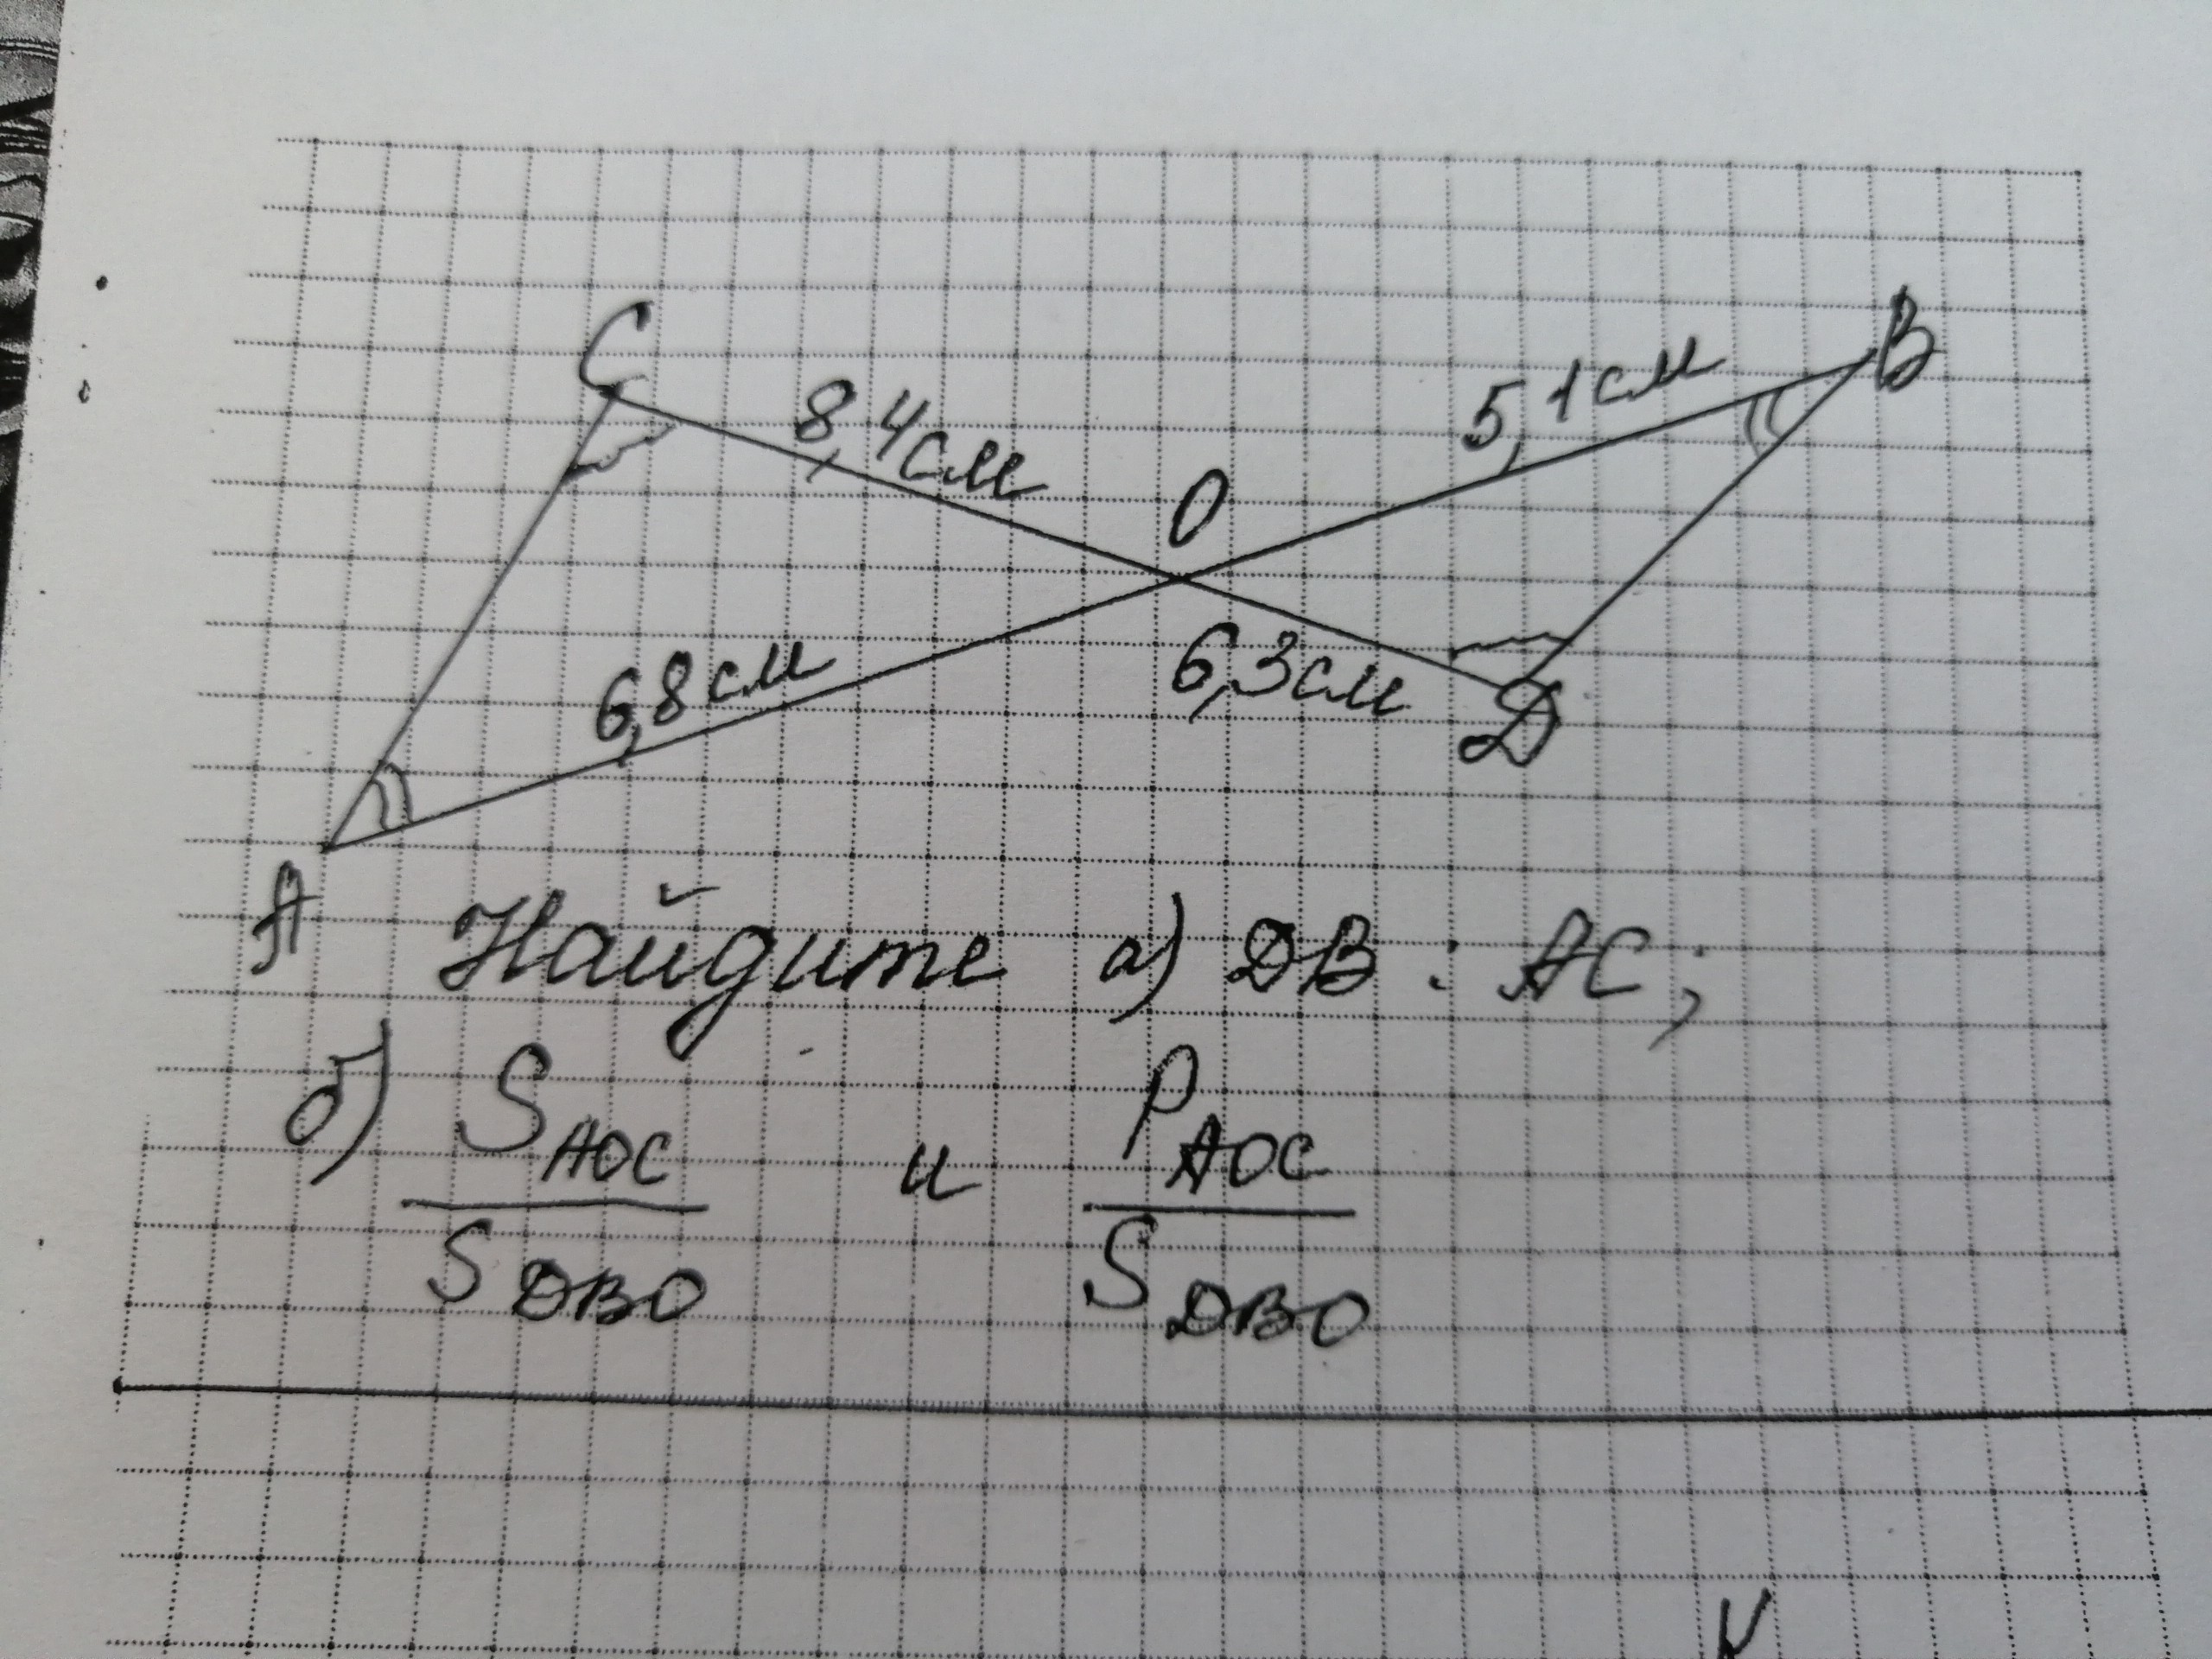 C
B
8,4 см
5,1 см
O
6,8 см
6,3 см
D
A
Найдите а) DB : AC;
б) S AOC и P AOC
S DBO S DBO
K